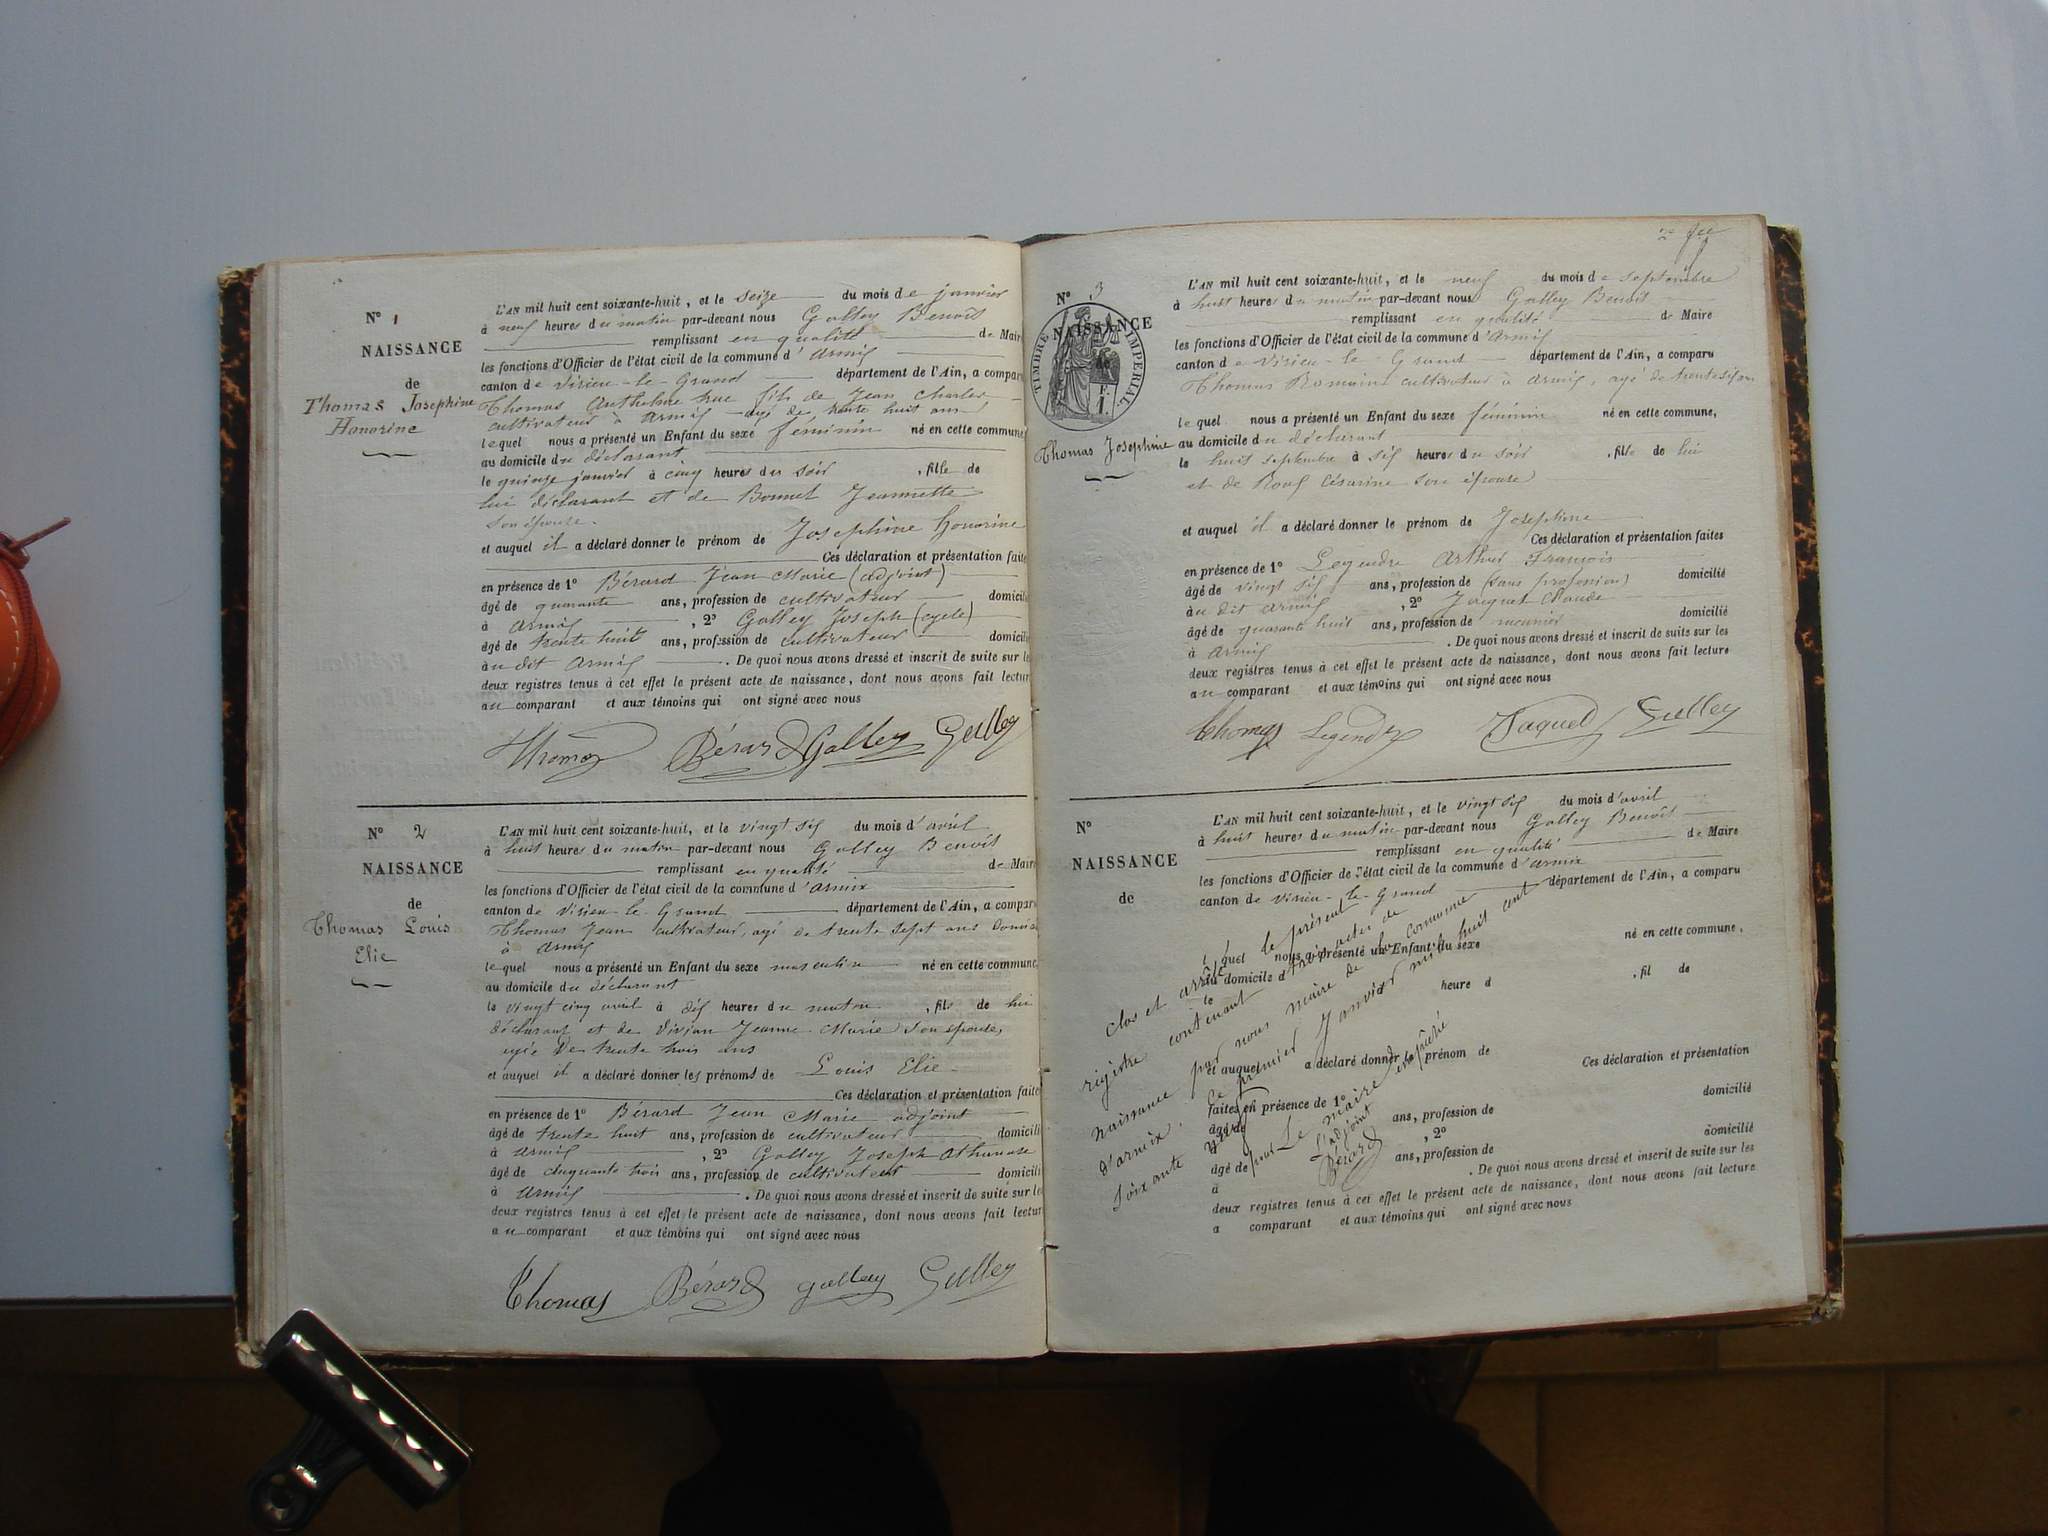 N° 1
NAISSANCE
de
Thomas Josephine
Honorine
L'AN mil huit cent soixante-huit, et le seize du mois de janvier
à neuf heures du matin par-devant nous Golley Benoit
remplissant en qualité de Maire
les fonctions d'Officier de l'état civil de la commune d'Armix
canton de Virieu-le-Grand département de l'Ain, a comparu
Thomas Anthelme fils de Jean Charles
cultivateur à Armix âgé de trente huit ans
lequel nous a présenté un Enfant du sexe féminin né en cette commune
au domicile du déclarant
le quinze janvier à cinq heures du soir , fille de
lui déclarant et de Bonnet Jeannette
son épouse.
et auquel il a déclaré donner le prénom de Josephine honorine
Ces déclaration et présentation faites
en présence de 1° Bérard Jean Marie (adjoint)
âgé de quarante ans, profession de cultivateur domicilié
à Armix , 2° Golley Joseph
âgé de trente huit ans, profession de cultivateur domicilié
àu dit Armix . De quoi nous avons dressé et inscrit de suite sur les
deux registres tenus à cet effet le présent acte de naissance, dont nous avons fait lecture
au comparant et aux témoins qui ont signé avec nous
Thomas Bérard Golley Golley
N° 2
NAISSANCE
de
Thomas Louis
Elie
L'AN mil huit cent soixante-huit, et le vingt six du mois d'avril
à huit heures du matin par-devant nous Golley Benoit
remplissant en qualité de Maire
les fonctions d'Officier de l'état civil de la commune d'armix
canton de Virieu-le-Grand département de l'Ain, a comparu
Thomas Jean cultivateur, agé de trente sept ans domicilié
à Armix
lequel nous a présenté un Enfant du sexe masculin né en cette commune,
au domicile du déclarant
le vingt cinq avril à dix heures du matin , fils de lui
déclarant et de Vivian Jeanne Marie son épouse,
agée de trente trois ans
et auquel il a déclaré donner les prénoms de Louis Elie
Ces déclaration et présentation faites
en présence de 1° Bérard Jean Marie adjoint
âgé de trente huit ans, profession de cultivateur domicilié
à Armix , 2° Golley Joseph Athanase
âgé de cinquante trois ans, profession de cultivateur domicilié
à Armix . De quoi nous avons dressé et inscrit de suite sur les
deux registres tenus à cet effet le présent acte de naissance, dont nous avons fait lecture
au comparant et aux témoins qui ont signé avec nous
Thomas Bérard golley Golley
N° 3
NAISSANCE
de
TIMBRE IMPERIAL
Thomas Josephine
L'AN mil huit cent soixante-huit, et le neuf du mois de septembre
à huit heures du matin par-devant nous Golley Benoit
remplissant en qualité de Maire
les fonctions d'Officier de l'état civil de la commune d'Armix
canton de Virieu-le-Grand département de l'Ain, a comparu
Thomas Romain cultivateur à Armix, agé de trente six ans
lequel nous a présenté un Enfant du sexe féminin né en cette commune,
au domicile du déclarant
le huit septembre à six heures du soir , fille de lui
et de Roux Césarine son épouse
et auquel il a déclaré donner le prénom de Josephine
Ces déclaration et présentation faites
en présence de 1° Legendre Arthur François
âgé de vingt six ans, profession de (sans profession) domicilié
àu dit Armix , 2° Jacquet Claude
âgé de quarante huit ans, profession de meunier domicilié
à Armix . De quoi nous avons dressé et inscrit de suite sur les
deux registres tenus à cet effet le présent acte de naissance, dont nous avons fait lecture
au comparant et aux témoins qui ont signé avec nous
Thomas Legendre Jaquet Golley
N°
NAISSANCE
de
L'AN mil huit cent soixante-huit, et le vingt six du mois d'avril
à huit heures du matin par-devant nous Golley Benoit
remplissant en qualité de Maire
les fonctions d'Officier de l'état civil de la commune d'armix
canton de Virieu-le-Grand département de l'Ain, a comparu
lequel nous a présenté un Enfant du sexe né en cette commune,
au domicile d
le heure d , fil de
et auquel a déclaré donner le prénom de
Ces déclaration et présentation
faites en présence de 1° domicilié
âgé de ans, profession de
à , 2° domicilié
âgé de ans, profession de
à . De quoi nous avons dressé et inscrit de suite sur les
deux registres tenus à cet effet le présent acte de naissance, dont nous avons fait lecture
a comparant et aux témoins qui ont signé avec nous
clos et arrêté le présent
registre contenant trois actes de
naissance par nous maire de la commune
d'armix, ce premier Janvier mil huit cent
soixante neuf
pour Le maire empêché
L'adjoint
Bérard